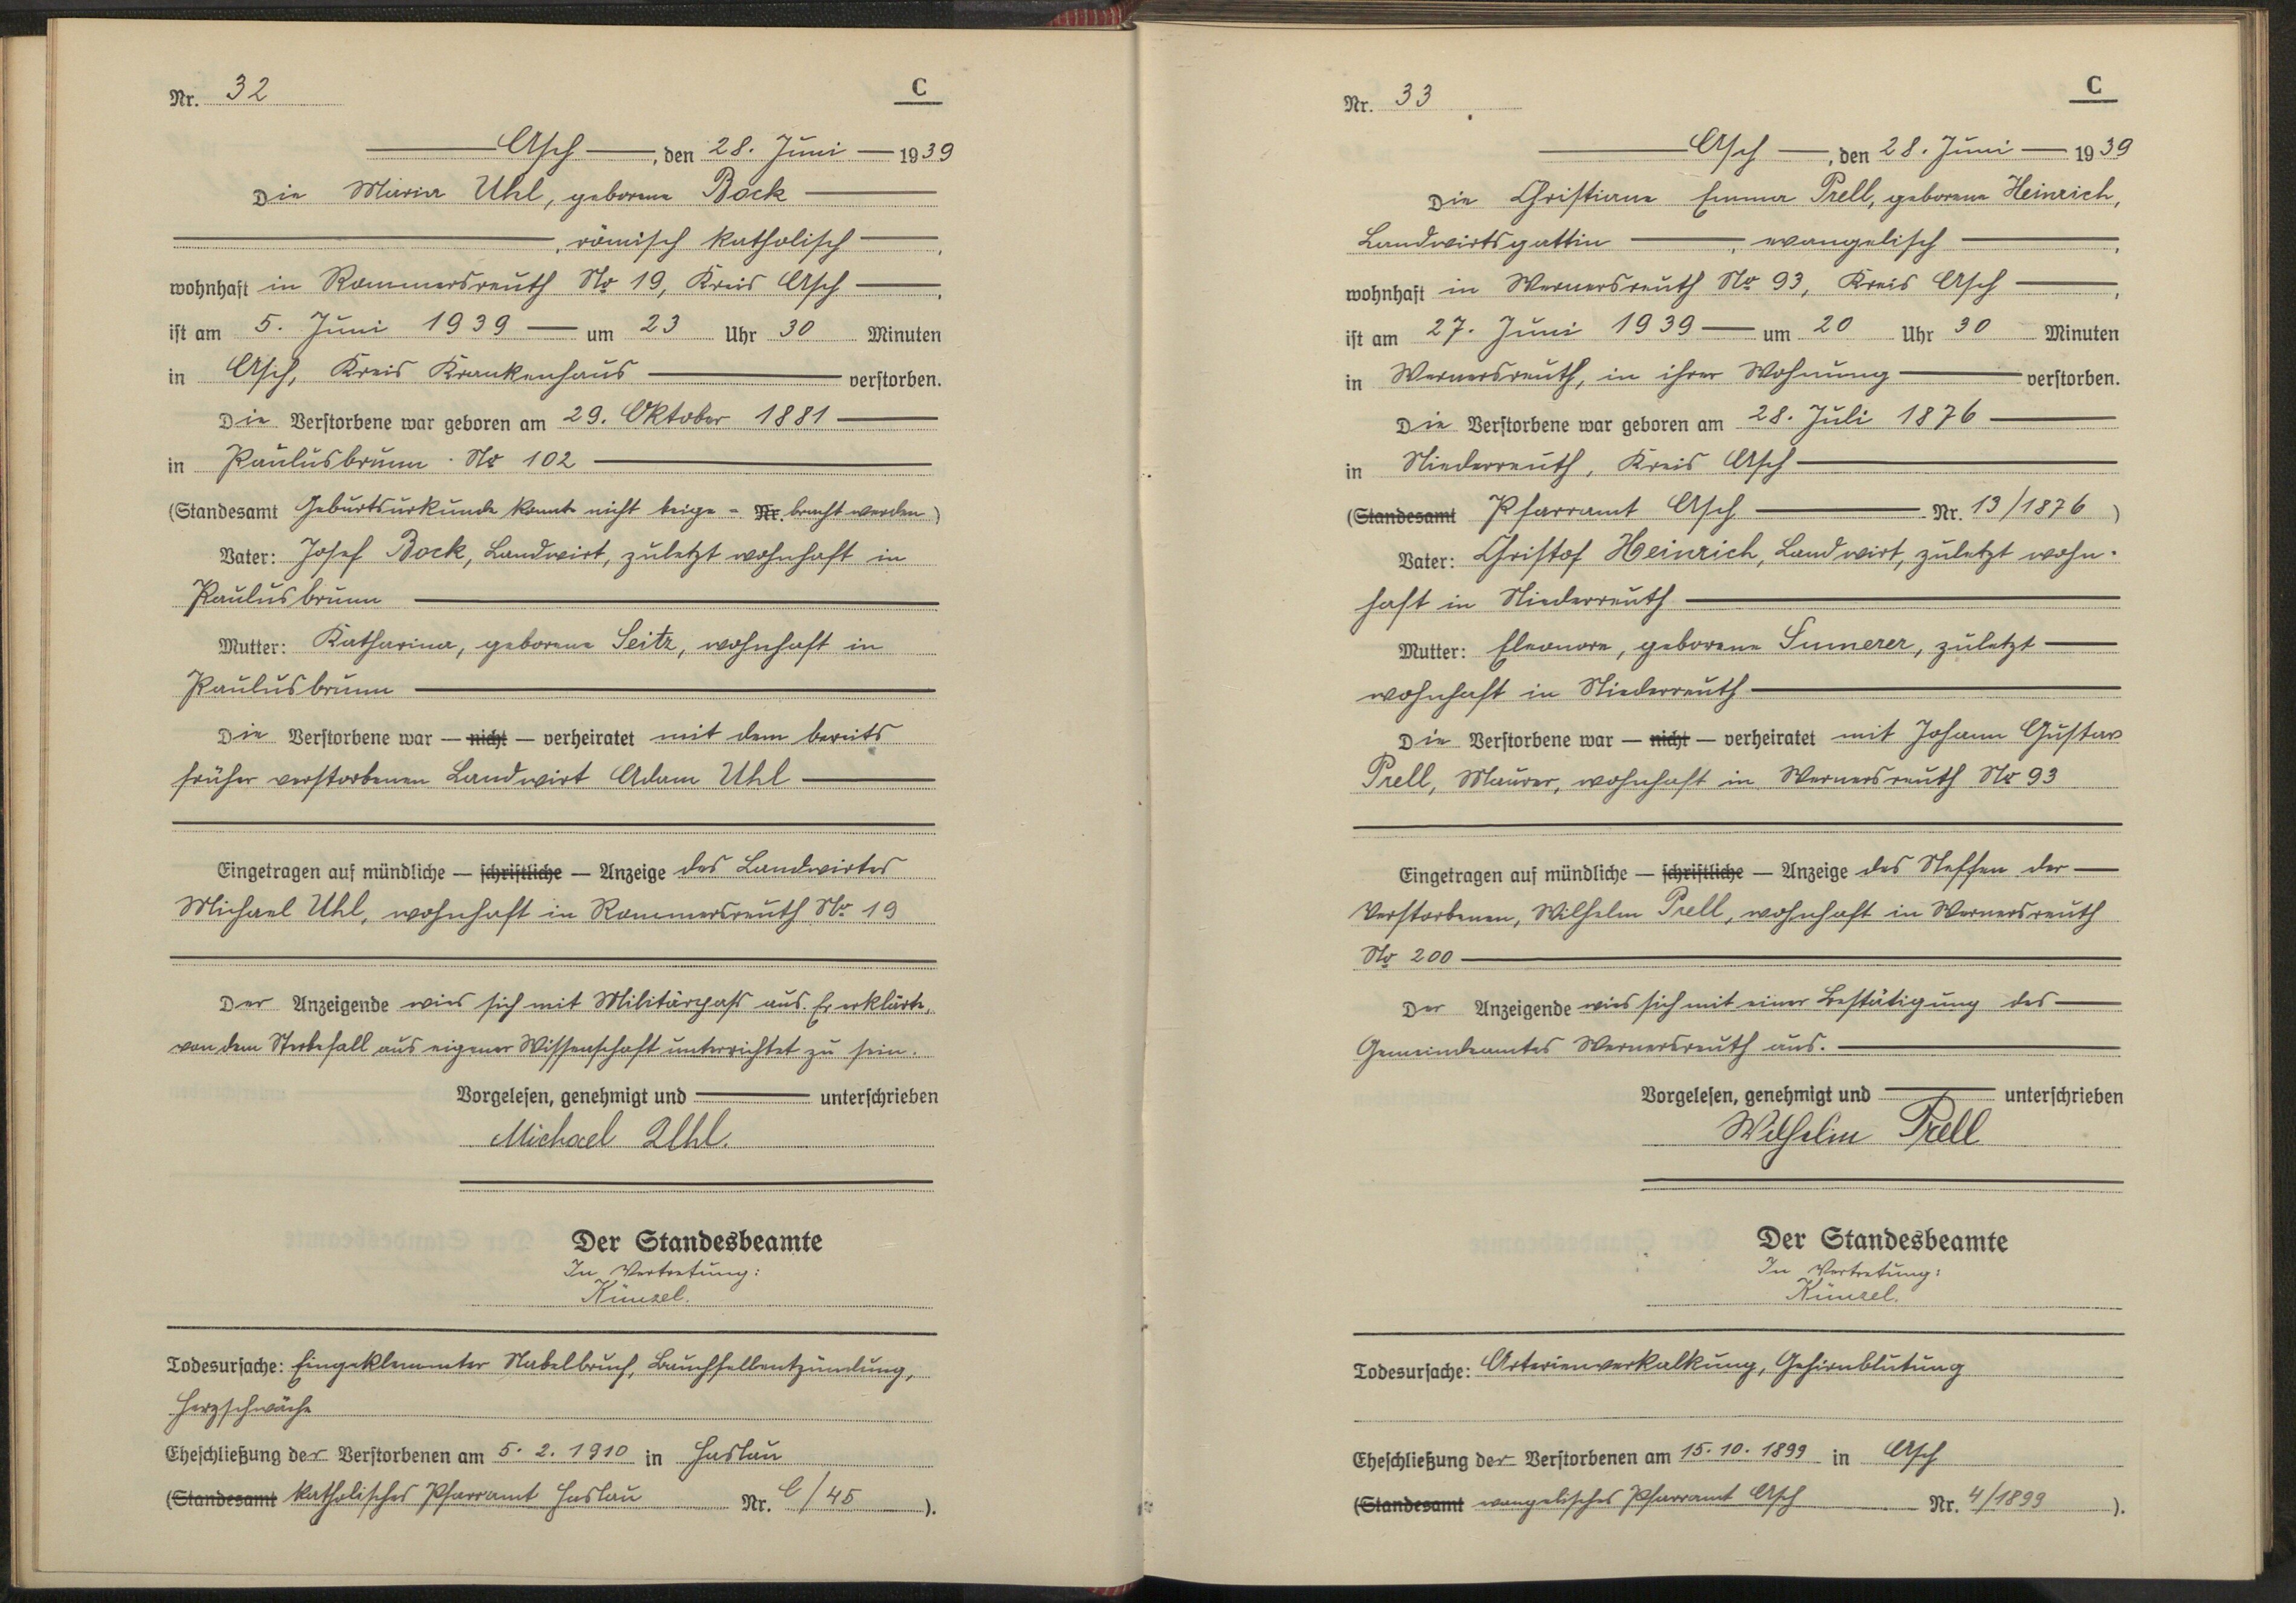 Nr. 32
C
Asch, den 28. Juni 1939
Die Maria Uhl, geborene Bock
, römisch katholisch,
wohnhaft in Rommersreuth No 19, Kreis Asch,
ist am 5. Juni 1939 um 23 Uhr 30 Minuten
in Asch, Kreis Krankenhaus verstorben.
Die Verstorbene war geboren am 29. Oktober 1881
in Paulusbrunn No 102
(Standesamt Geburtsurkunde konnte nicht beige- Nr. bracht werden)
Vater: Josef Bock, Landwirt, zuletzt wohnhaft in
Paulusbrunn
Mutter: Katharina, geborene Seitz, wohnhaft in
Paulusbrunn
Die Verstorbene war — nicht — verheiratet mit dem bereits
früher verstorbenen Landwirt Adam Uhl
Eingetragen auf mündliche — schriftliche — Anzeige des Landwirtes
Michael Uhl, wohnhaft in Rommersreuth No 19
Der Anzeigende wies sich mit Militärpass aus. Er erklärte,
von dem Sterbefall aus eigener Wissenschaft unterrichtet zu sein.
Vorgelesen, genehmigt und unterschrieben
Michael Uhl.
Der Standesbeamte
In Vertretung:
Künzel.
Todesursache: Eingeklemmter Nabelbruch, Bauchfellentzündung,
Herzschwäche
Eheschließung der Verstorbenen am 5. 2. 1910 in Haslau
(Standesamt katholisches Pfarramt Haslau Nr. C/45).
Nr. 33
C
Asch, den 28. Juni 1939
Die Christiane Emma Prell, geborene Heinrich,
Landwirtsgattin, evangelisch,
wohnhaft in Wernersreuth No 93, Kreis Asch,
ist am 27. Juni 1939 um 20 Uhr 30 Minuten
in Wernersreuth, in ihrer Wohnung verstorben.
Die Verstorbene war geboren am 28. Juli 1876
in Niederreuth, Kreis Asch
(Standesamt Pfarramt Asch Nr. 13/1876)
Vater: Christof Heinrich, Landwirt, zuletzt wohn-
haft in Niederreuth
Mutter: Eleonore, geborene Sumerer, zuletzt
wohnhaft in Niederreuth
Die Verstorbene war — nicht — verheiratet mit Johann Gustav
Prell, Maurer, wohnhaft in Wernersreuth No 93
Eingetragen auf mündliche — schriftliche — Anzeige des Neffen der
Verstorbenen, Wilhelm Prell, wohnhaft in Wernersreuth
No 200
Der Anzeigende wies sich mit einer Bestätigung des
Gemeindeamtes Wernersreuth aus.
Vorgelesen, genehmigt und unterschrieben
Wilhelm Prell
Der Standesbeamte
In Vertretung:
Künzel.
Todesursache: Arterienverkalkung, Gehirnblutung
Eheschließung der Verstorbenen am 15. 10. 1899 in Asch
(Standesamt evangelisches Pfarramt Asch Nr. 4/1899).